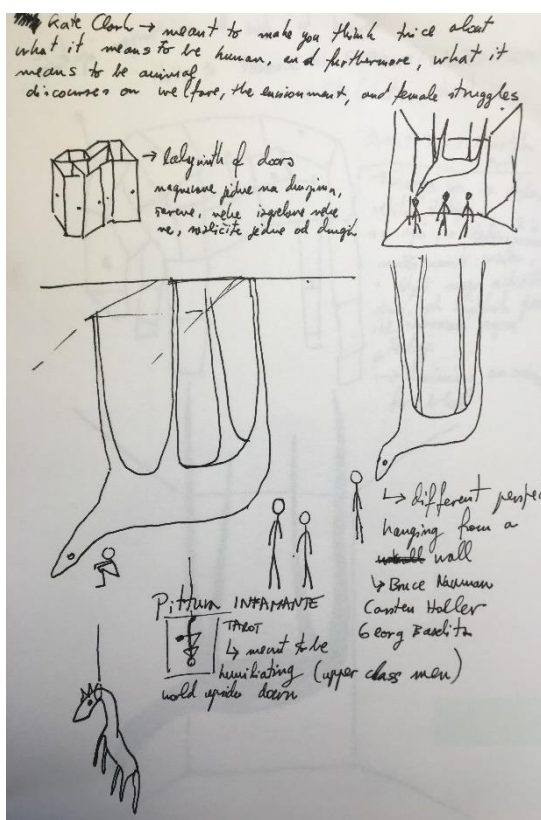 Kate Clark → meant to make you think twice about
what it means to be human, and furthermore, what it
means to be animal
discourses on welfare, the environment, and female struggles
→ labyrinth of doors
jedne na drugima,
šarene, neke izgrebane neke
ne, različite jedne od drugih
↳ different perspec
hanging from a
wall
↳ Bruce Nauman
Carsten Holler
Georg Baselitz
Pittura INFAMANTE
TAROT
↳ meant to be
humiliating (upper class men)
world upside down